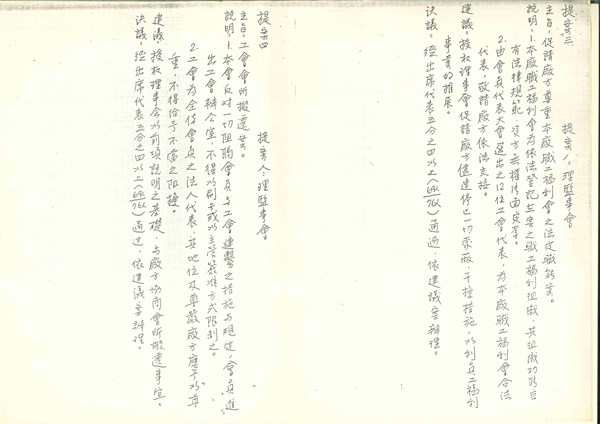 提案三　提案人：理監事會
主旨：促請廠方尊重本廠職工福利會之法定職能案。
說明：1.本廠職工福利會為依法登記在案之職工福利組織，其組織功能自
有法律規範，資方無權片面定奪。
2.由會員代表大會選出之12位工會代表，為本廠職工福利會合法
代表，敬請廠方依法支持。
建議：授權理事會促請廠方儘速停止一切蒙蔽、干擾措施，以利員工福利
事業的推展。
決議：經出席代表五分之四以上(69/76)通過，依建議案辦理。
提案四　提案人：理監事會
主旨：工會會所搬遷案。
說明：1.本會反對一切阻隔會員與工會連繫之措施與規定，會員進
出工會辦公室，不得以刷卡或以主管簽准方式限制之。
2.工會為全體會員之法人代表，其地位及尊嚴廠方應予以尊
重，不得給予不當之阻撓。
建議：授權理事會以前項說明之基礎，與廠方協商會所搬遷事宜。
決議：經出席代表五分之四以上(69/76)通過，依建議案辦理。